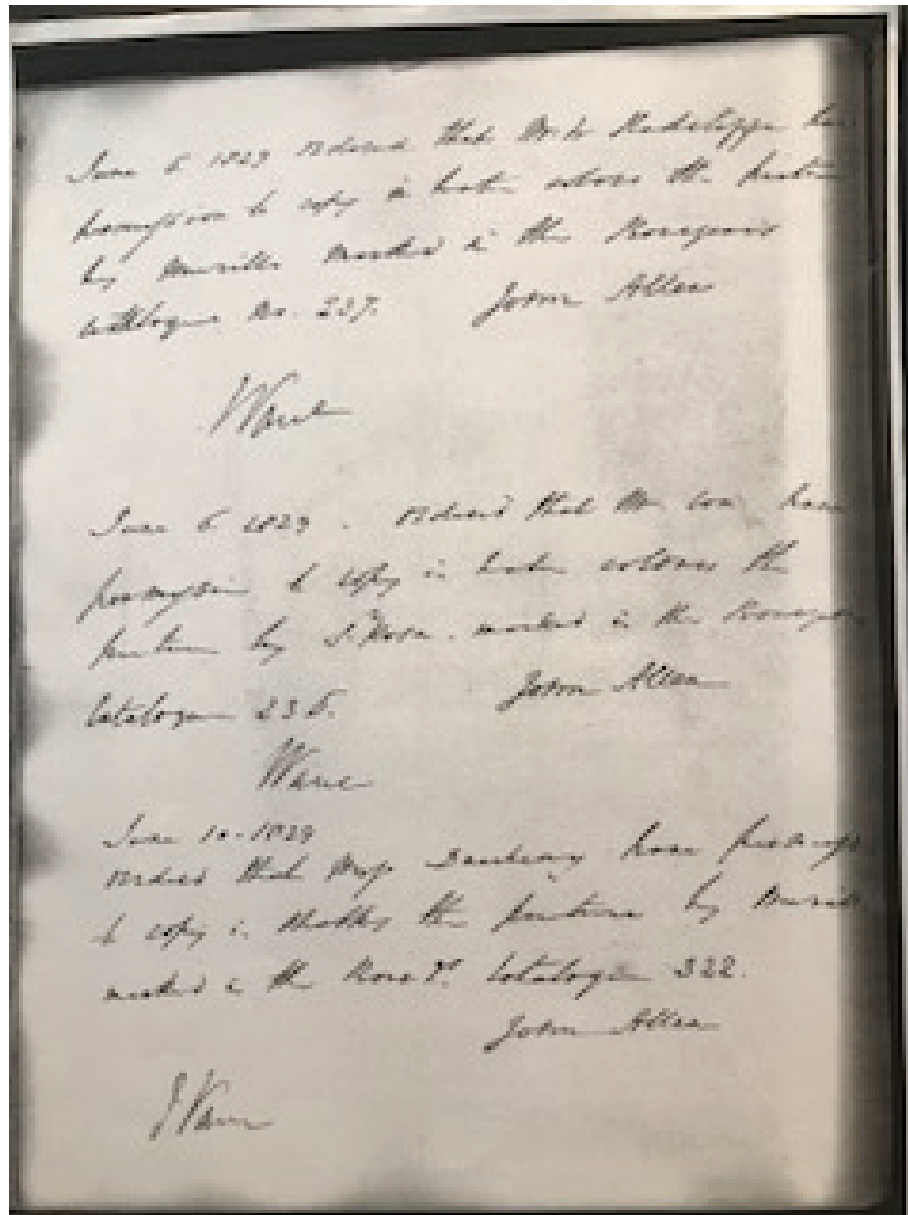 June 6 1829 Ordered that Mr W Radclyffe have
permission to copy in water colors the picture
by Murillo marked in the Bourgeois
catalogue No. 227. John Allen
Ware
June 6 1829. Ordered that Mr Cox have
permission to copy in water colours the
picture by S. Rosa. marked in the Bourgeois
Catalogue 236. John Allen
Ware
June 10. 1829
Ordered that Miss have
to copy in the picture by Murillo
marked in the Catalogue 322.
John Allen
J Ware